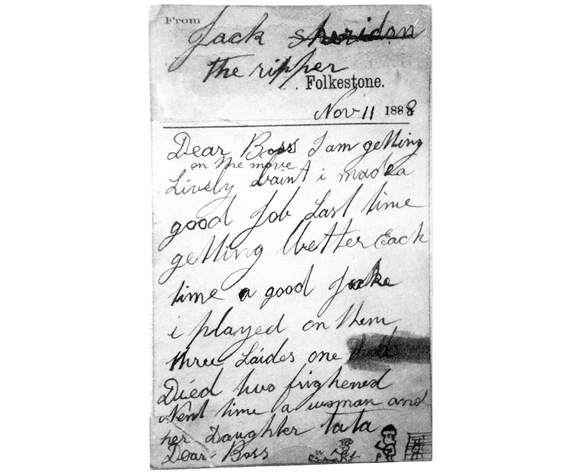 From
Jack sheridan
the ripper
Folkestone.
Nov 11 1888
Dear Boss I am getting
on the move
Lively aint i made a
good Job Last time
getting better Each
time a good Joke
i played on them
three Laides one
Died two frighened
Next time a woman and
her Daughter ta ta
Dear Boss